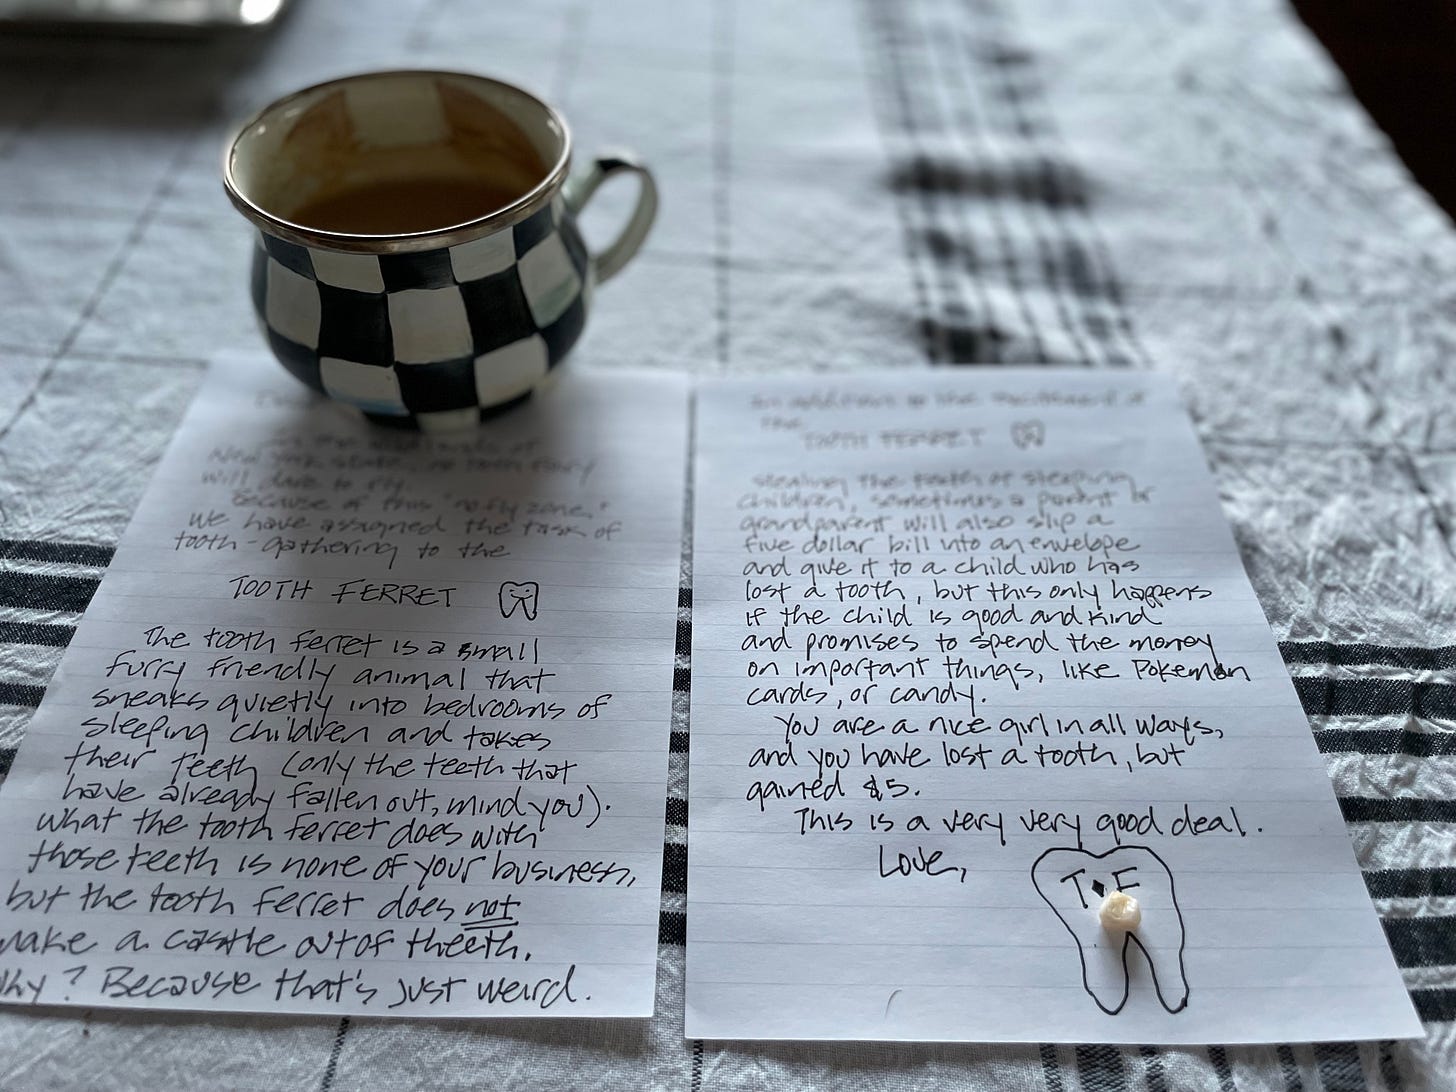 in the wildlands of
New York state, no tooth fairy
will dare to fly.
Because of this "no fly zone,"
we have assigned the task of
tooth-gathering to the
TOOTH FERRET
The tooth ferret is a small
furry friendly animal that
sneaks quietly into bedrooms of
sleeping children and takes
their teeth (only the teeth that
have already fallen out, mind you).
what the tooth ferret does with
those teeth is none of your business,
but the tooth ferret does not
make a castle out of theeth.
Why? Because that's just weird.
In addition to the
the
TOOTH FERRET
stealing the teeth of sleeping
children, sometimes a parent or
grandparent will also slip a
five dollar bill into an envelope
and give it to a child who has
lost a tooth, but this only happens
if the child is good and kind
and promises to spend the money
on important things, like Pokemon
cards, or candy.
You are a nice girl in all ways,
and you have lost a tooth, but
gained $5.
This is a very very good deal.
Love,
T♦F